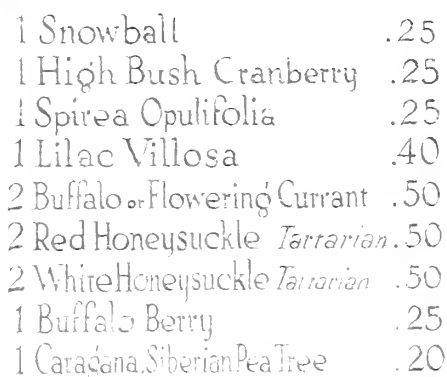 1 Snowball .25
1 High Bush Cranberry .25
1 Spirea Opulifolia .25
1 Lilac Villosa .40
2 Buffalo or Flowering Currant .50
2 Red Honeysuckle Tartarian .50
2 White Honeysuckle Tartarian .50
1 Buffalo Berry .25
1 Caragana, Siberian Pea Tree .20